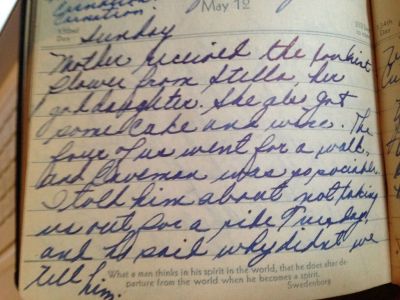 Carnation
May 12
132nd
Day
Sunday
Mother received the
flower from Stella, her
goddaughter. She also got
some cake and wine. The
four of us went for a walk,
and was so sociable.
I told him about not taking
us out for a ride Tuesday,
and he said why didn't we
tell him.
What a man thinks in his spirit in the world, that he does after de-
parture from the world when he becomes a spirit.
Swedenborg
134th
Day